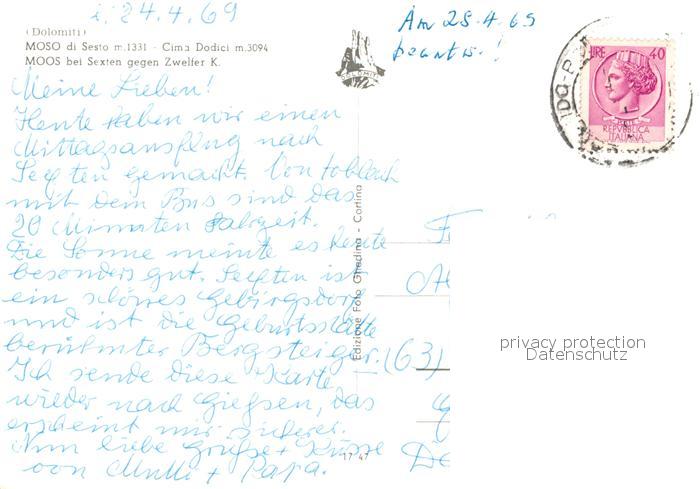 i. 24.4.69
(Dolomiti)
MOSO di Sesto m.1331 - Cima Dodici m.3094
MOOS bei Sexten gegen Zwelfer K.
Meine Lieben!
Heute haben wir einen
Mittagsausflug nach
Sexten gemacht. Von Toblach
mit dem Bus sind das
20 Minuten Fahrzeit.
Die Sonne meinte es heute
besonders gut. Sexten ist
ein schönes Gebirgsdorf
und ist die Geburtsstätte
berühmter Bergsteiger.
Ich sende diese Karte
wieder nach Gießen, das
erscheint mir sicherer.
Nun liebe Grüße + Küsse
von Mutti + Papa.
Am 28.4.69
beantw.!
DOLOMITI
LIRE 40
REPVBBLICA
ITALIANA
Edizione Foto Ghedina - Cortina
17 47
(63)
privacy protection
Datenschutz